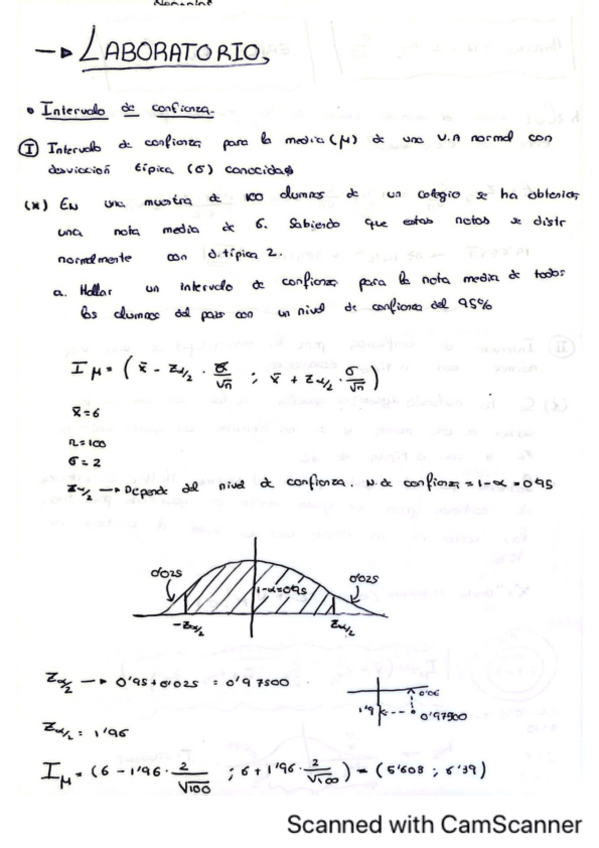 → LABORATORIO,
• Intervalo de confianza.
I Intervalo de confianza para la media (μ) de una V.A normal con
desviación típica (σ) conocida
(*) EN una muestra de 100 alumnos de un colegio se ha obtenido,
una nota media de 6. Sabiendo que estas notas se distr
normalmente con d.típica 2.
a. Hallar un intervalo de confianza para la nota media de todos
los alumnos del país con un nivel de confianza del 95%
I μ = ( x̄ - Zα/2 · σ/√n ; x̄ + Zα/2 · σ/√n )
x̄ = 6
n = 100
σ = 2
Zα/2 → Depende del nivel de confianza. N. de confianza = 1-α = 0'95
0'025 1-α=0'95 0'025
-Zα/2 Zα/2
Zα/2 → 0'95 + 0'025 = 0'97500
0'06
1'9 0'97500
Zα/2 = 1'96
Iμ = (6 - 1'96 · 2/√100 ; 6 + 1'96 · 2/√100) = (5'608 ; 6'39)
Scanned with CamScanner